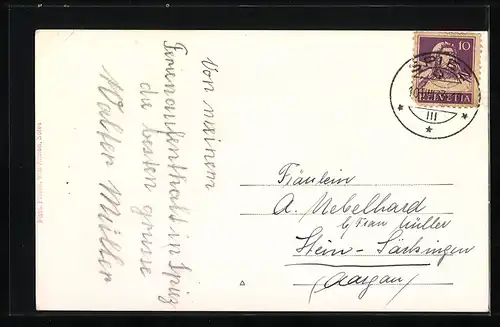 Von meinem
Ferienaufenthalt in Spiez
die besten grüsse
Walter Müller
10
HELVETIA
SPIEZ
10.VIII
III
Fräulein
A. Nebelhard
b/Frau Müller
Stein-Säckingen
(Aargau)